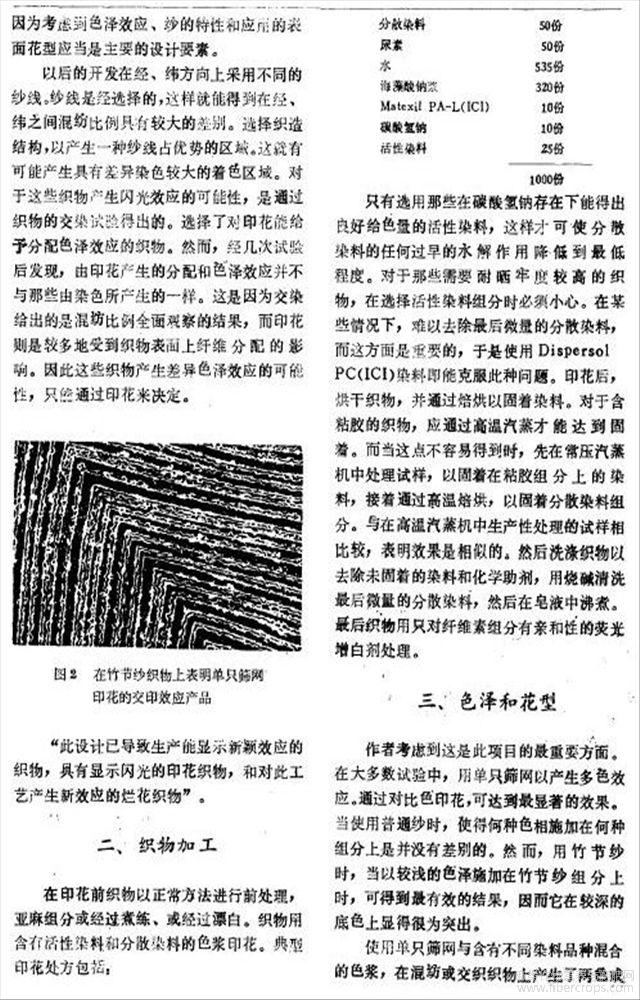 因为考虑到色泽效应、纱的特性和应用的表
面花型应当是主要的设计要素。
以后的开发在经、纬方向上采用不同的
纱线。纱线是经选择的,这样就能得到在经、
纬之间混纺比例具有较大的差别。选择织造
结构,以产生一种纱线占优势的区域。这就有
可能产生具有差异染色较大的着色区域。对
于这些织物产生闪光效应的可能性,是通过
织物的交染试验得出的。选择了对印花能给
予分配色泽效应的织物。然而,经几次试验
后发现,由印花产生的分配和色泽效应并不
与那些由染色所产生的一样。这是因为交染
给出的是混纺比例全面观察的结果,而印花
则是较多地受到织物表面上纤维分配的影
响。因此这些织物产生差异色泽效应的可能
性,只能通过印花来决定。
图2 在竹节纱织物上表明单只筛网
印花的交印效应产品
“此设计已导致生产能显示新颖效应的
织物,具有显示闪光的印花织物,和对此工
艺产生新效应的烂花织物”。
二、织物加工
在印花前织物以正常方法进行前处理,
亚麻组分或经过煮练、或经过漂白。织物用
含有活性染料和分散染料的色浆印花。典型
印花处方包括:
分散染料 50份
尿素 50份
水 535份
海藻酸钠浆 320份
Matexil PA-L(ICI) 10份
碳酸氢钠 10份
活性染料 25份
1000份
只有选用那些在碳酸氢钠存在下能得出
良好给色量的活性染料,这样才可使分散
染料的任何过早的水解作用降低到最低
程度。对于那些需要耐晒牢度较高的织
物,在选择活性染料组分时必须小心。在某
些情况下,难以去除最后微量的分散染料,
而这方面是重要的,于是使用Dispersol
PC(ICI)染料即能克服此种问题。印花后,
烘干织物,并通过焙烘以固着染料。对于含
粘胶的织物,应通过高温汽蒸才能达到固
着。而当这点不容易得到时,先在常压汽蒸
机中处理试样,以固着在粘胶组分上的染
料,接着通过高温焙烘,以固着分散染料组
分。与在高温汽蒸机中生产性处理的试样相
比较,表明效果是相似的。然后洗涤织物以
去除未固着的染料和化学助剂,用烧碱清洗
最后微量的分散染料,然后在皂液中沸煮。
最后织物用只对纤维素组分有亲和性的荧光
增白剂处理。
三、色泽和花型
作者考虑到这是此项目的最重要方面。
在大多数试验中,用单只筛网以产生多色效
应。通过对比色印花,可达到最显著的效果。
当使用普通纱时,使得何种色相施加在何种
组分上是并没有差别的。然而,用竹节纱
时,当以较浅的色泽施加在竹节纱组分上
时,可得到最有效的结果,因而它在较深的
底色上显得很为突出。
使用单只筛网与含有不同染料品种混合
的色浆,在混纺或交织织物上产生了两色或
www.fibercrops.com